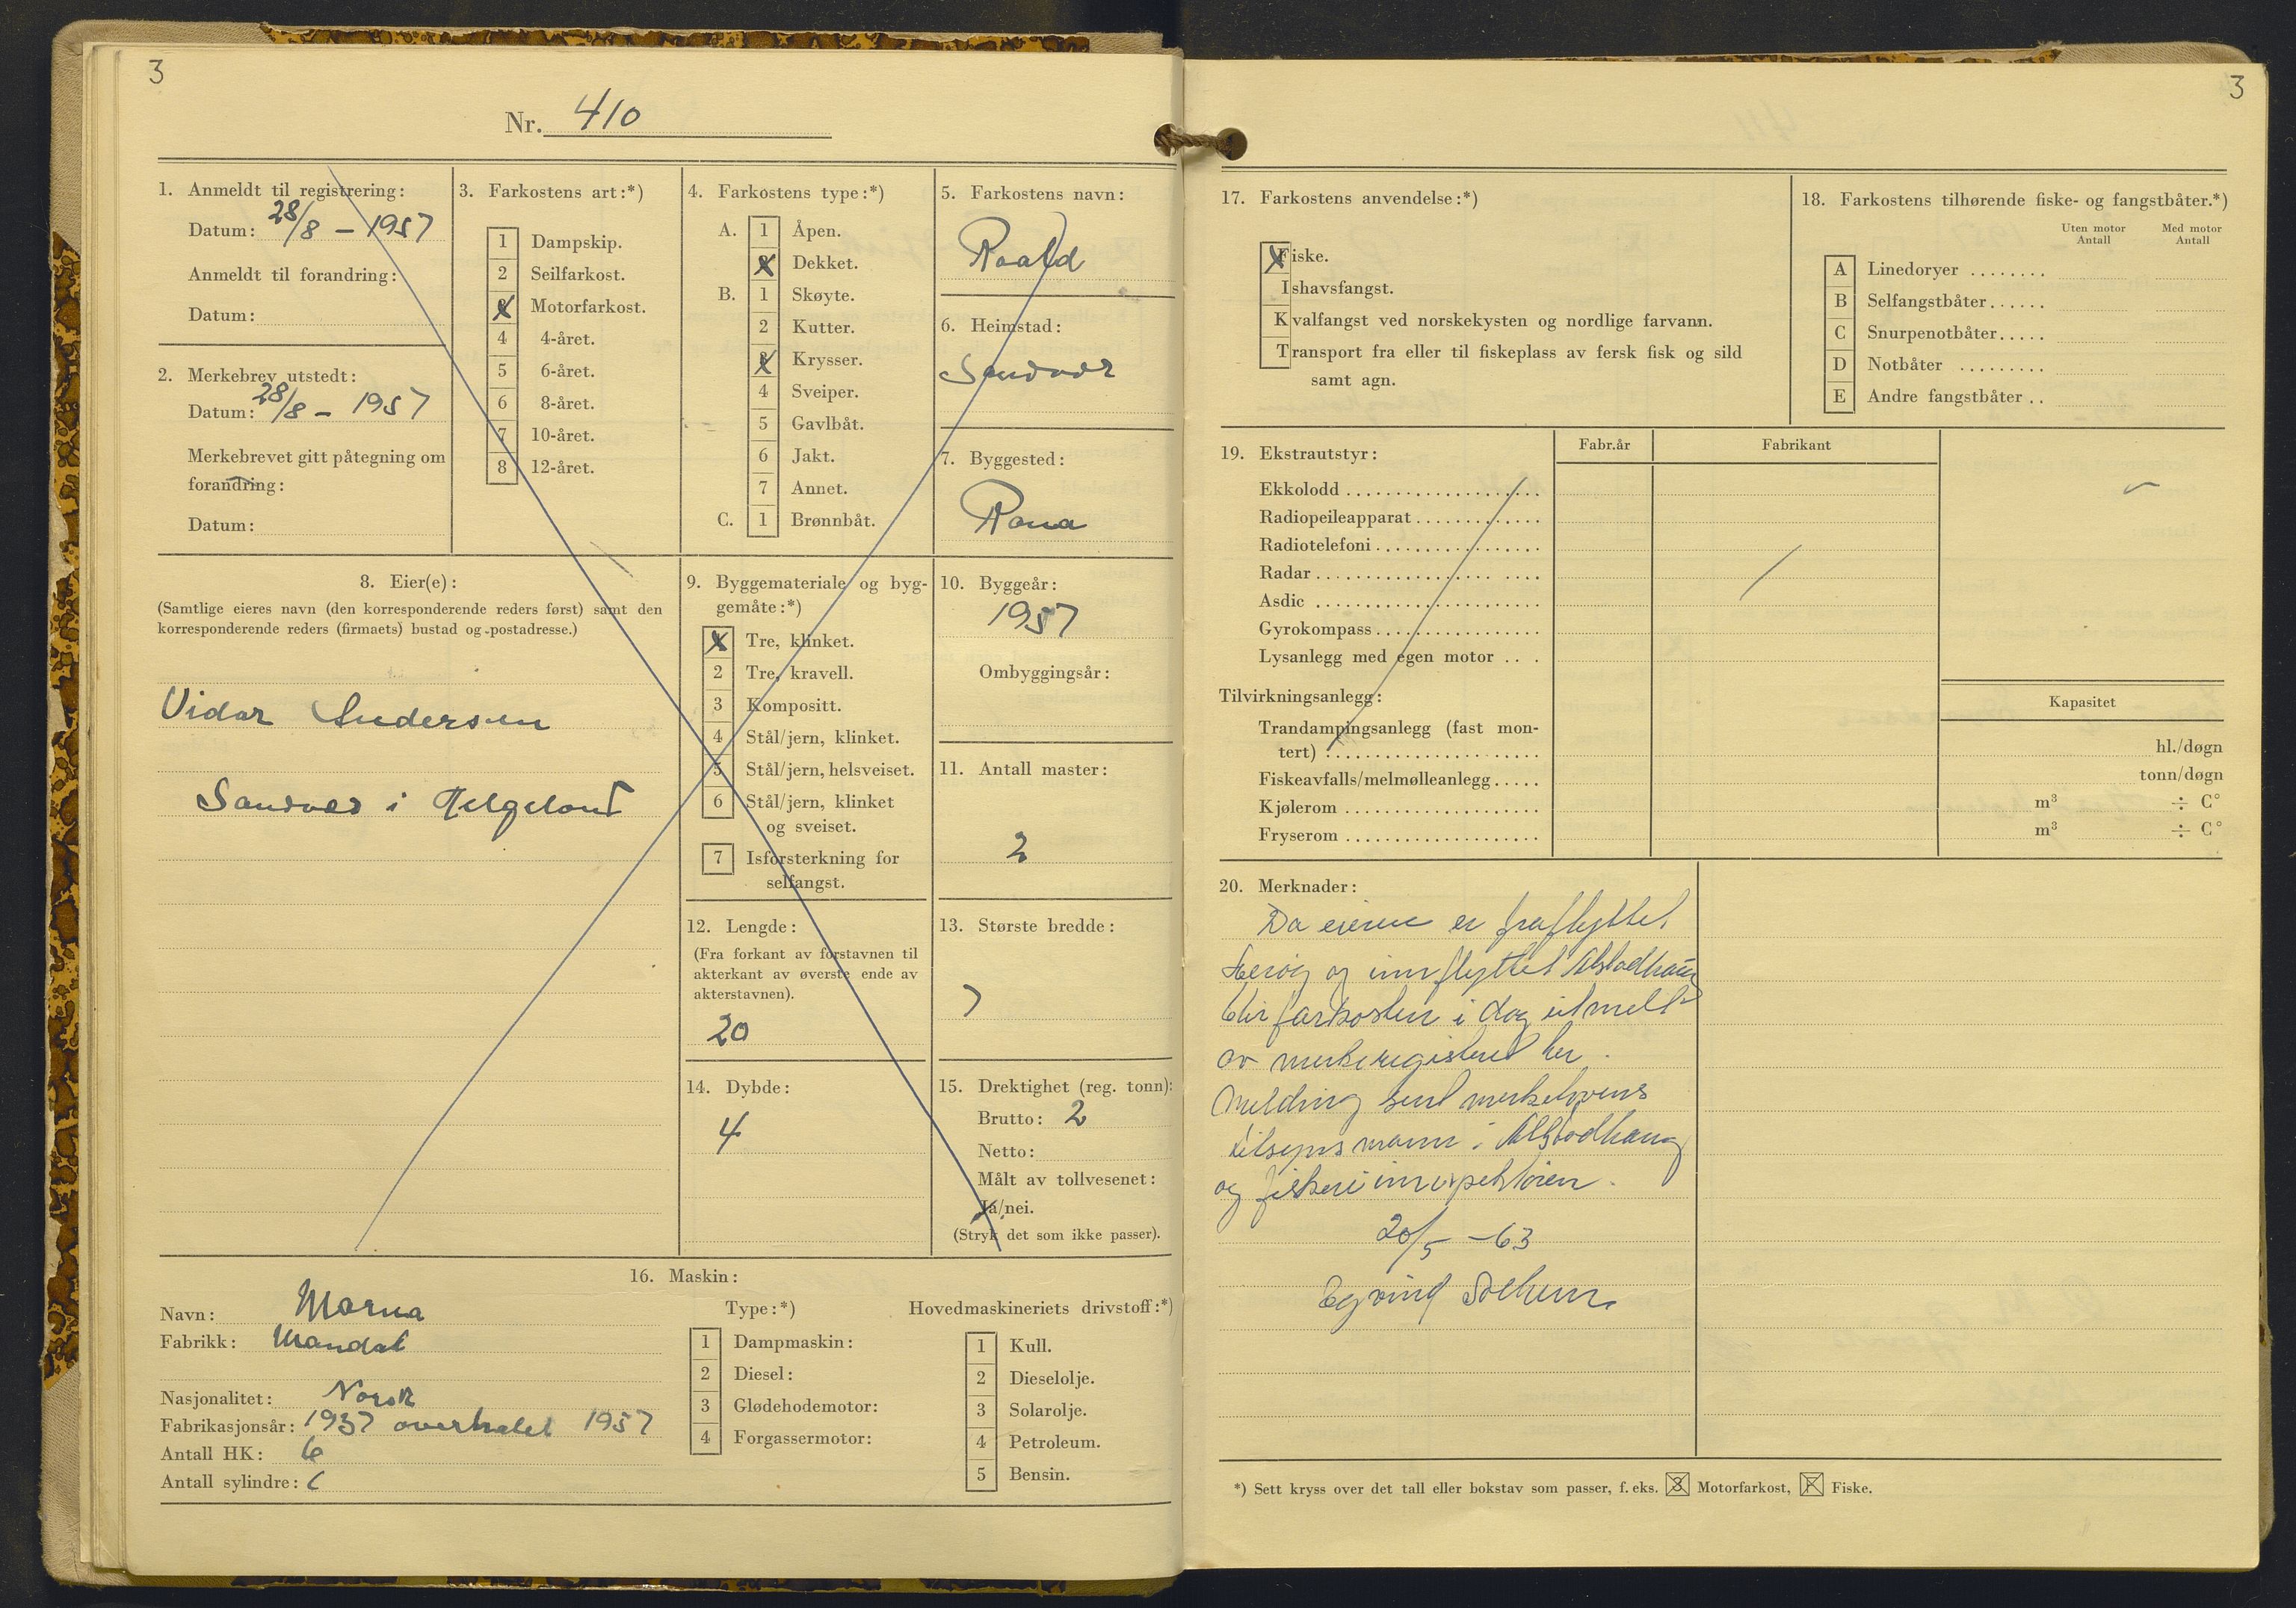 3
Nr. 410
1. Anmeldt til registrering:
Datum: 28/8 – 1957
Anmeldt til forandring:
Datum:
2. Merkebrev utstedt:
Datum: 28/8 – 1957
Merkebrevet gitt påtegning om
forandring:
Datum:
3. Farkostens art:*)
1 Dampskip.
2 Seilfarkost.
X Motorfarkost.
4 4-året.
5 6-året.
6 8-året.
7 10-året.
8 12-året.
4. Farkostens type:*)
A. 1 Åpen.
X Dekket.
B. 1 Skøyte.
2 Kutter.
X Krysser.
4 Sveiper.
5 Gavlbåt.
6 Jakt.
7 Annet.
C. 1 Brønnbåt.
5. Farkostens navn:
Roald
6. Heimstad:
Sandvær
7. Byggested:
Rana
8. Eier(e):
(Samtlige eieres navn (den korresponderende reders først) samt den
korresponderende reders (firmaets) bustad og postadresse.)
Vidar Andersen
Sandvær i Helgeland
9. Byggemateriale og byg-
gemåte:*)
X Tre, klinket.
2 Tre, kravell.
3 Kompositt.
4 Stål/jern, klinket.
5 Stål/jern, helsveiset.
6 Stål/jern, klinket
og sveiset.
7 Isforsterkning for
selfangst.
10. Byggeår:
1957
Ombyggingsår:
11. Antall master:
2
12. Lengde:
(Fra forkant av forstavnen til
akterkant av øverste ende av
akterstavnen).
20
13. Største bredde:
7
14. Dybde:
4
15. Drektighet (reg. tonn):
Brutto: 2
Netto:
Målt av tollvesenet:
Ja/nei.
(Stryk det som ikke passer).
16. Maskin:
Navn: Marna
Fabrikk: Mandal
Nasjonalitet: Norsk
Fabrikasjonsår: 1937 overhalet 1957
Antall HK: 6
Antall sylindre:
Type:*)
1 Dampmaskin:
2 Diesel:
3 Glødehodemotor:
4 Forgassermotor:
Hovedmaskineriets drivstoff:*)
1 Kull.
2 Dieselolje.
3 Solarolje.
4 Petroleum.
5 Bensin.
3
17. Farkostens anvendelse:*)
X Fiske.
Ishavsfangst.
Kvalfangst ved norskekysten og nordlige farvann.
Transport fra eller til fiskeplass av fersk fisk og sild
samt agn.
18. Farkostens tilhørende fiske- og fangstbåter.*)
Uten motor Med motor
Antall Antall
A Linedoryer ........
B Selfangstbåter......
C Snurpenotbåter.....
D Notbåter .........
E Andre fangstbåter ..
19. Ekstrautstyr:
Fabr.år Fabrikant
Ekkolodd
Radiopeileapparat
Radiotelefoni
Radar
Asdic
Gyrokompass
Lysanlegg med egen motor ...
Tilvirkningsanlegg:
Kapasitet
Trandampingsanlegg (fast mon-
tert) hl./døgn
Fiskeavfalls/melmølleanlegg..... tonn/døgn
Kjølerom m³ ÷ C°
Fryserom m³ ÷ C°
20. Merknader:
Da eieren er fraflyttet
Herøy og innflyttet Alstadhaug
blir farkosten i dag utmeldt
av merkeregisteret her.
Melding sent merkelovens
tilsynsmann i Alstadhaug
og fiskeriinspektören.
20/5 –63
Eyvind
*) Sett kryss over det tall eller bokstav som passer, f. eks. 3 Motorfarkost, F Fiske.